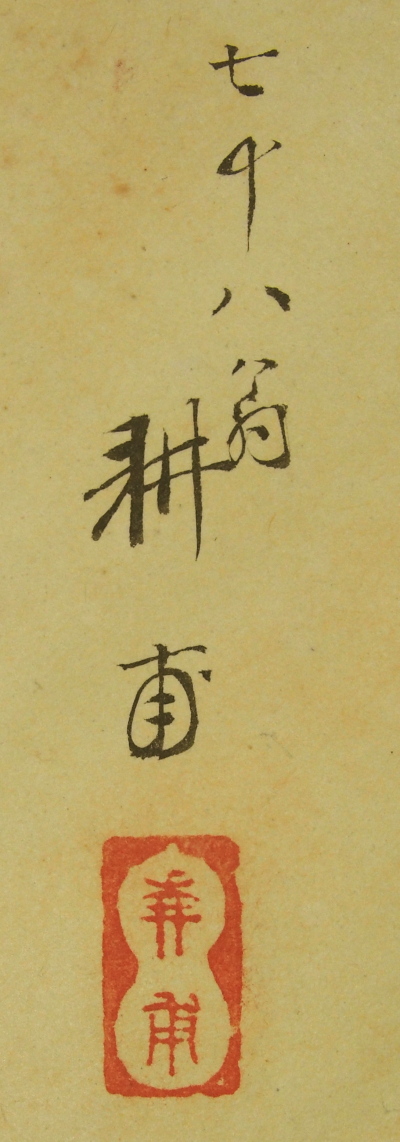 七十八翁
耕甫
耕甫